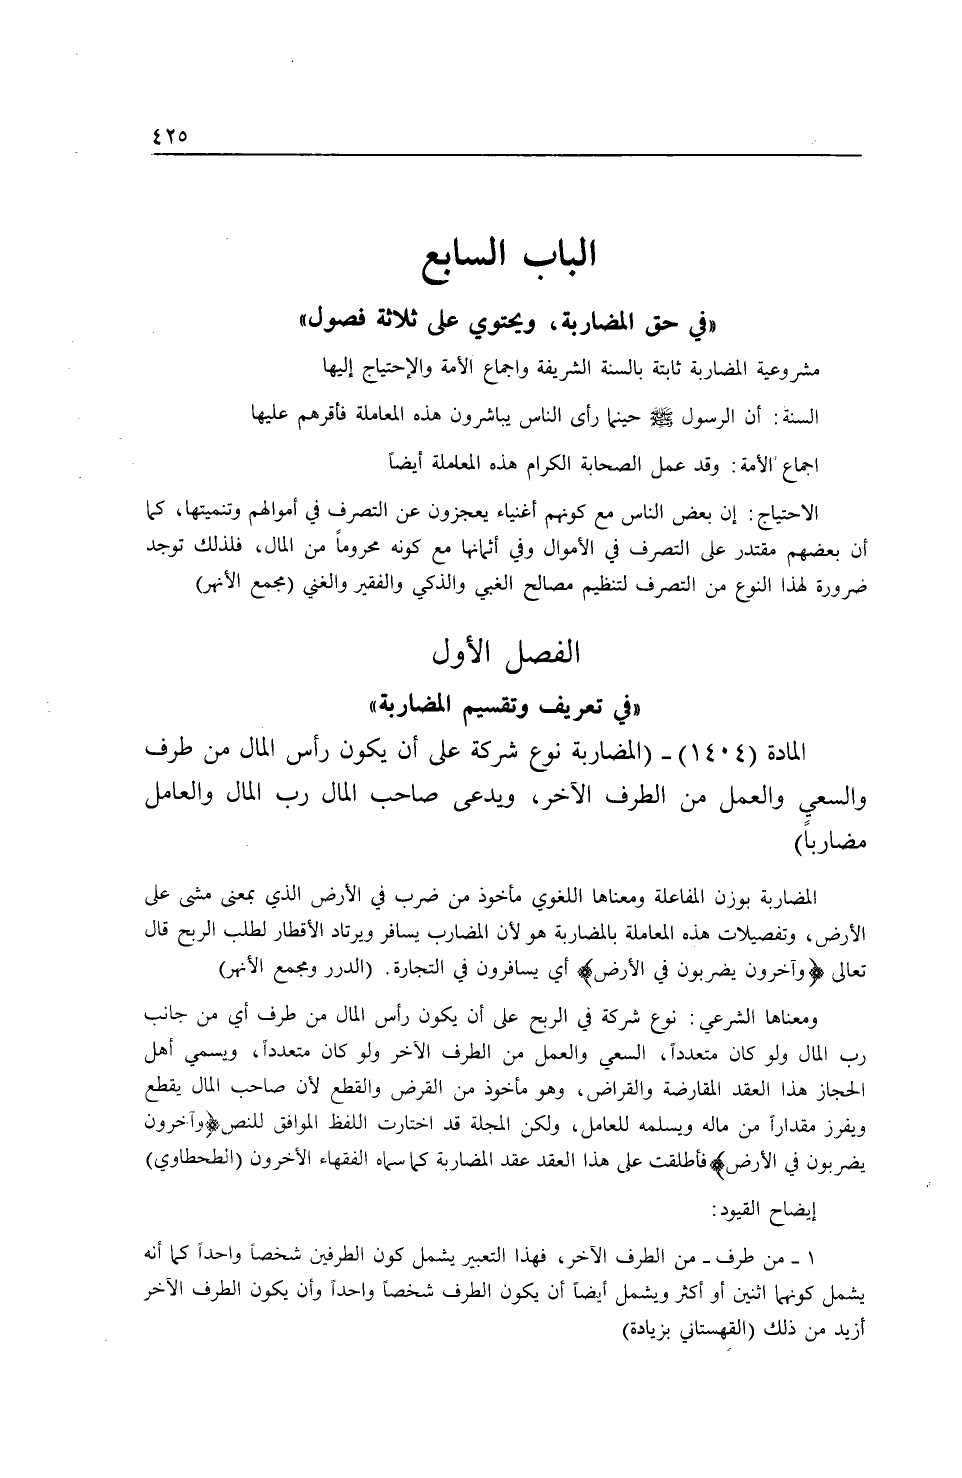 ٤٢٥
الباب السابع
«في حق المضاربة، ويحتوي على ثلاثة فصول»
مشروعية المضاربة ثابتة بالسنة الشريفة واجماع الأمة والإحتياج إليها
السنة: أن الرسول ﷺ حينما رأى الناس يباشرون هذه المعاملة فأقرهم عليها
اجماع الأمة: وقد عمل الصحابة الكرام هذه المعاملة أيضاً
الاحتياج: إن بعض الناس مع كونهم أغنياء يعجزون عن التصرف في أموالهم وتنميتها، كما
أن بعضهم مقتدر على التصرف في الأموال وفي أثمانها مع كونه محروماً من المال، فلذلك توجد
ضرورة لهذا النوع من التصرف لتنظيم مصالح الغبي والذكي والفقير والغني (مجمع الأنهر)
الفصل الأول
«في تعريف وتقسيم المضاربة»
المادة (١٤٠٤) - (المضاربة نوع شركة على أن يكون رأس المال من طرف
والسعي والعمل من الطرف الآخر، ويدعى صاحب المال رب المال والعامل
مضارباً)
المضاربة بوزن المفاعلة ومعناها اللغوي مأخوذ من ضرب في الأرض الذي بمعنى مشى على
الأرض، وتفصيلات هذه المعاملة بالمضاربة هو لأن المضارب يسافر ويرتاد الأقطار لطلب الربح قال
تعالى ﴿وآخرون يضربون في الأرض﴾ أي يسافرون في التجارة. (الدرر ومجمع الأنهر)
ومعناها الشرعي: نوع شركة في الربح على أن يكون رأس المال من طرف أي من جانب
رب المال ولو كان متعدداً، السعي والعمل من الطرف الآخر ولو كان متعدداً، ويسمي أهل
الحجاز هذا العقد المقارضة والقراض، وهو مأخوذ من القرض والقطع لأن صاحب المال يقطع
ويفرز مقداراً من ماله ويسلمه للعامل، ولكن المجلة قد اختارت اللفظ الموافق للنص ﴿وآخرون
يضربون في الأرض﴾ فأطلقت على هذا العقد عقد المضاربة كما سماه الفقهاء الأخرون (الطحطاوي)
إيضاح القيود:
١ - من طرف - من الطرف الآخر، فهذا التعبير يشمل كون الطرفين شخصاً واحداً كما أنه
يشمل كونهما اثنين أو أكثر ويشمل أيضاً أن يكون الطرف شخصاً واحداً وأن يكون الطرف الآخر
أزيد من ذلك (القهستاني بزيادة)